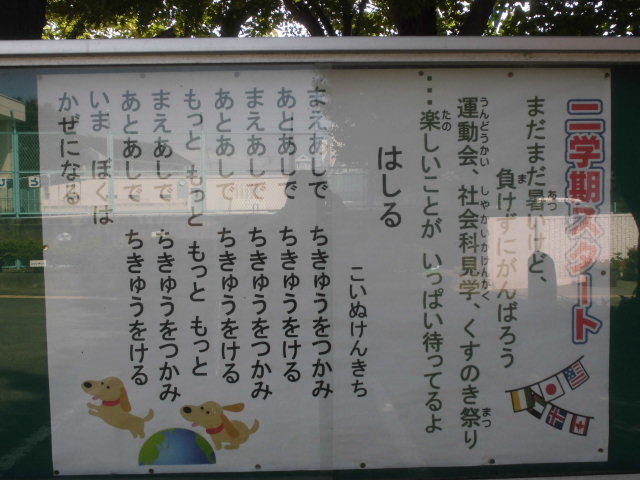 二学期スタート
まだまだ暑いけど、
負けずにがんばろう
運動会、社会科見学、くすのき祭り
…楽しいことが いっぱい待ってるよ
はしる
こいぬけんきち
まえあしで ちきゅうをつかみ
あとあしで ちきゅうをける
まえあしで ちきゅうをつかみ
あとあしで ちきゅうをける
もっと もっと もっと もっと
まえあしで ちきゅうをつかみ
あとあしで ちきゅうをける
いま ぼくは
かぜになる